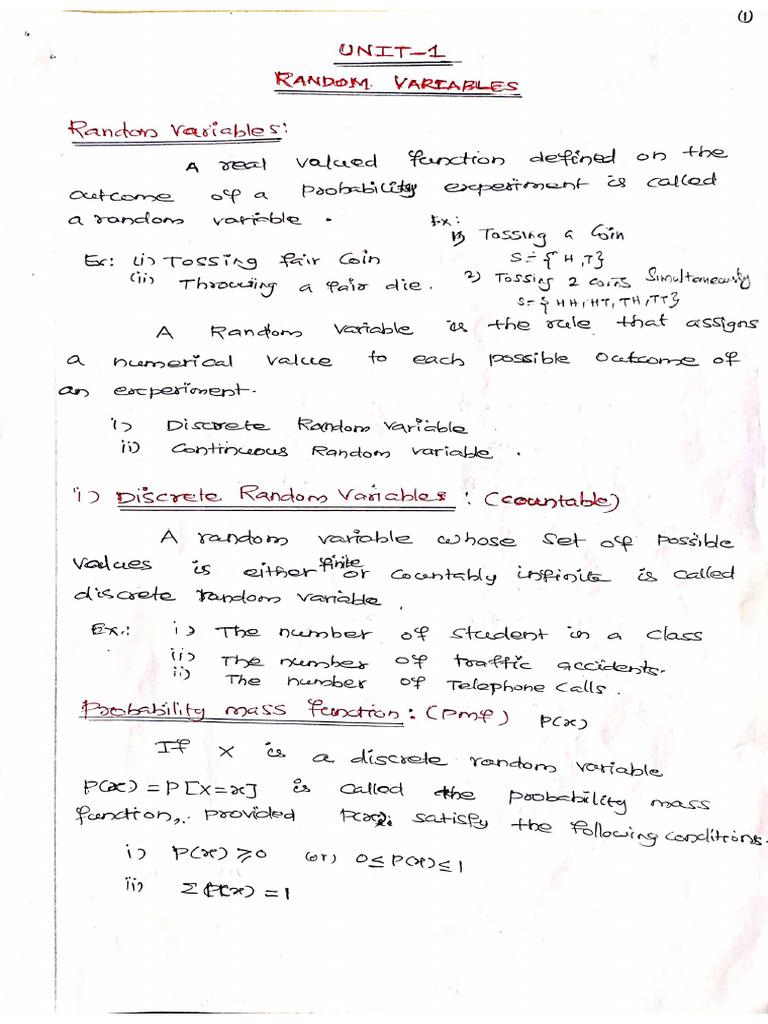 (1)
UNIT-1
RANDOM VARIABLES
Random Variables:
A real valued function defined on the
outcome of a probability experiment is called
a random variable.
Ex: (i) Tossing fair Coin
(ii) Throwing a fair die.
Ex:
1) Tossing a Coin
S = { H, T}
2) Tossing 2 coins Simultaneously
S = { HH, HT, TH, TT}
A Random Variable is the rule that assigns
a numerical value to each possible outcome of
an experiment.
i) Discrete Random Variable
ii) Continuous Random variable.
i) Discrete Random Variables: (countable)
A random variable whose set of possible
values is either finite or countably infinite is called
discrete random variable.
Ex.: i) The number of student in a class
ii) The number of traffic accidents.
ii) The number of Telephone calls.
Probability mass function: (pmf) P(x)
If X is a discrete random variable
P(x) = P[X=x] is called the probability mass
function, provided satisfy the following conditions.
i) P(x) ≥ 0 (or) 0 ≤ P(x) ≤ 1
ii) Σ P(x) = 1